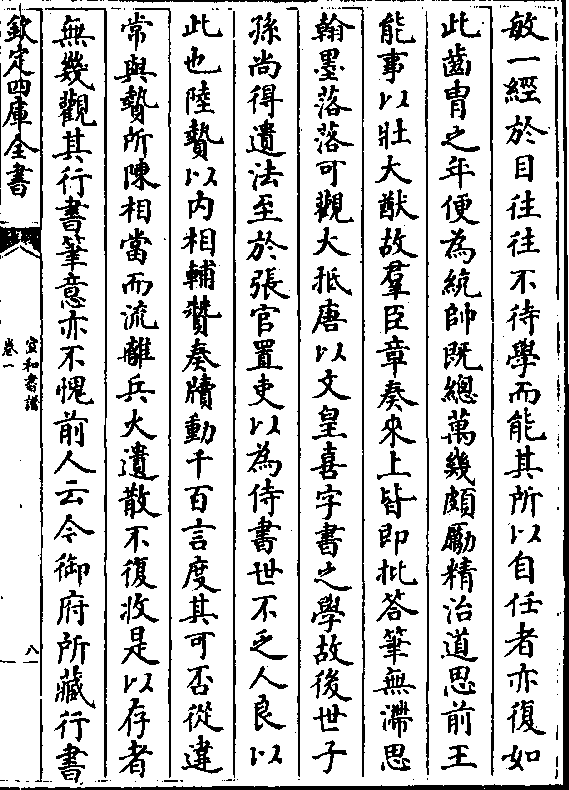 敏一經於目往往不待學而能其所以自任者亦復如
此齒胄之年便為統帥既總萬幾頗勵精治道思前王
能事以壯大猷故羣臣章奏來上皆即批答筆無滯思
翰墨落落可觀大抵唐以文皇喜字書之學故後世子
孫尚得遺法至於張官置吏以為侍書世不乏人良以
此也陸贄以内相輔贊奏牘動千百言度其可否從違
常與贄所陳相當而流離兵火遺散不復收是以存者
無幾觀其行書筆意亦不愧前人云今御府所藏行書
欽定四庫全書
宣和書譜
卷一
八